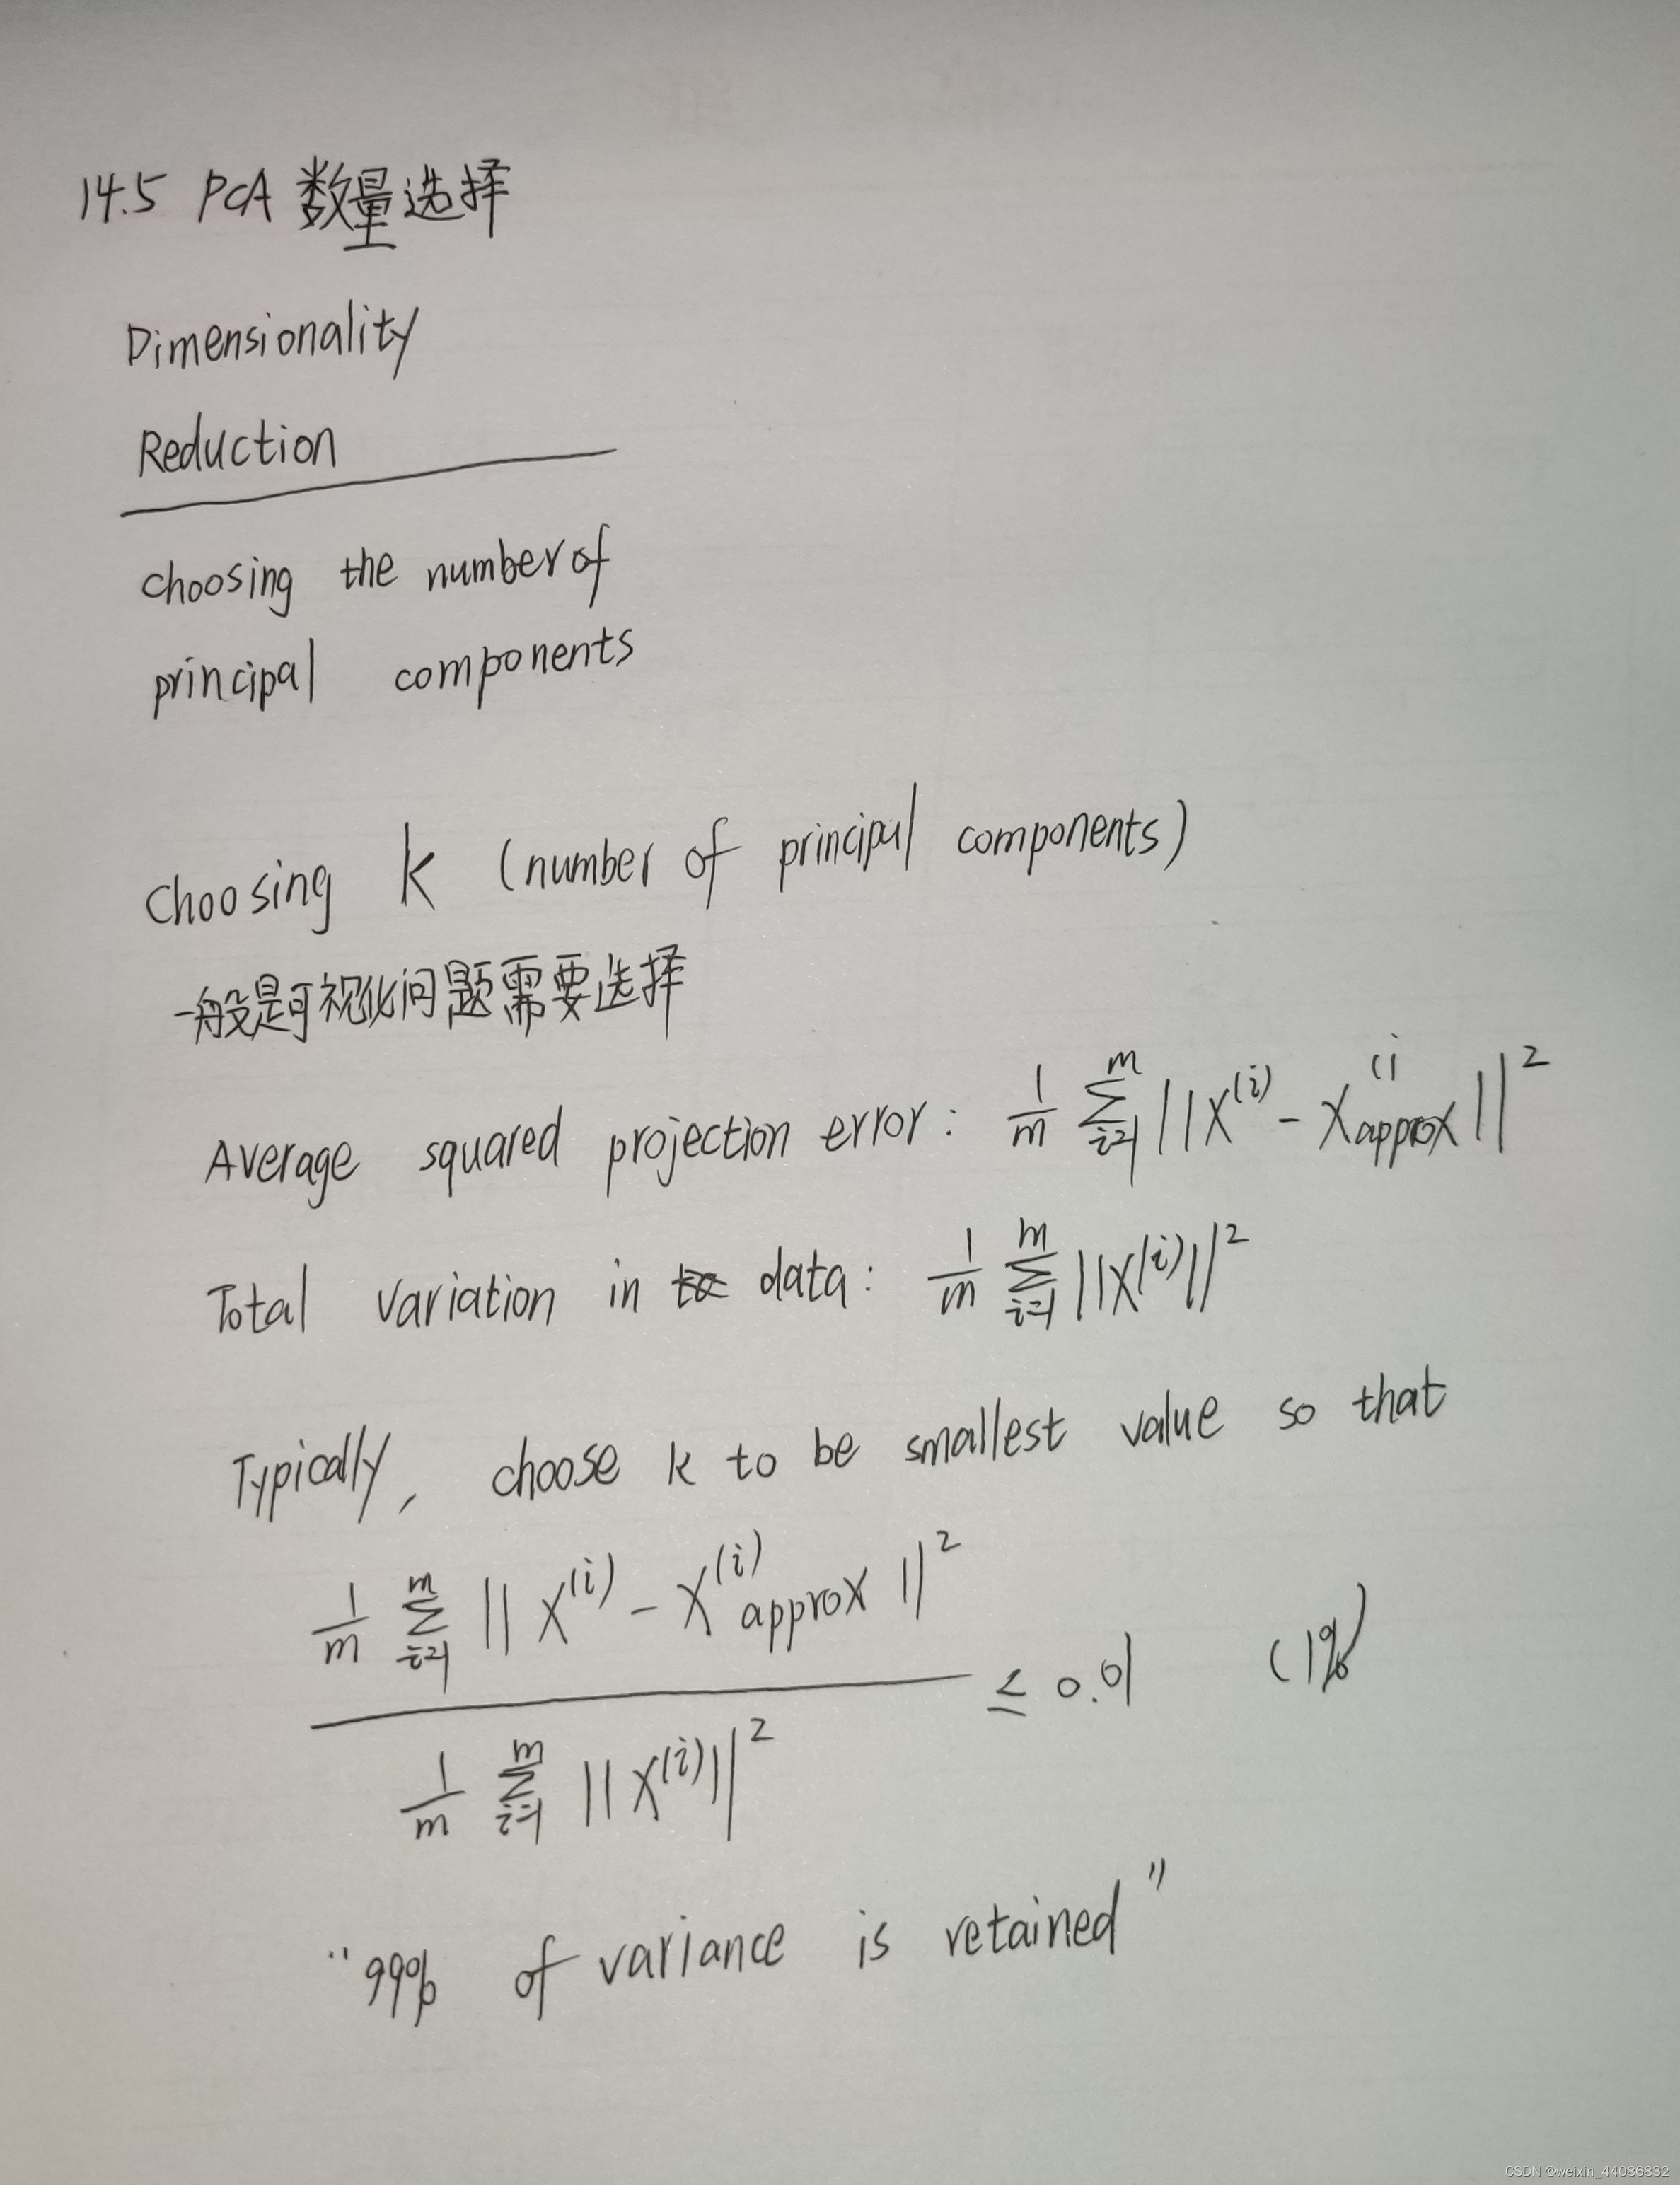 14.5 PCA 数量选择
Dimensionality
Reduction
choosing the number of
principal components
Choosing k (number of principal components)
一般是可视化问题需要选择
Average squared projection error: 1/m ∑_{i=1}^{m} ||x^{(i)} - x_{approx}^{(i}||^2
Total variation in data: 1/m ∑_{i=1}^{m} ||x^{(i)}||^2
Typically, choose k to be smallest value so that
1/m ∑_{i=1}^{m} ||x^{(i)} - x^{(i)}_{approx}||^2
≤ 0.01 (1%)
1/m ∑_{i=1}^{m} ||x^{(i)}||^2
"99% of variance is retained"
CSDN @weixin_44086832